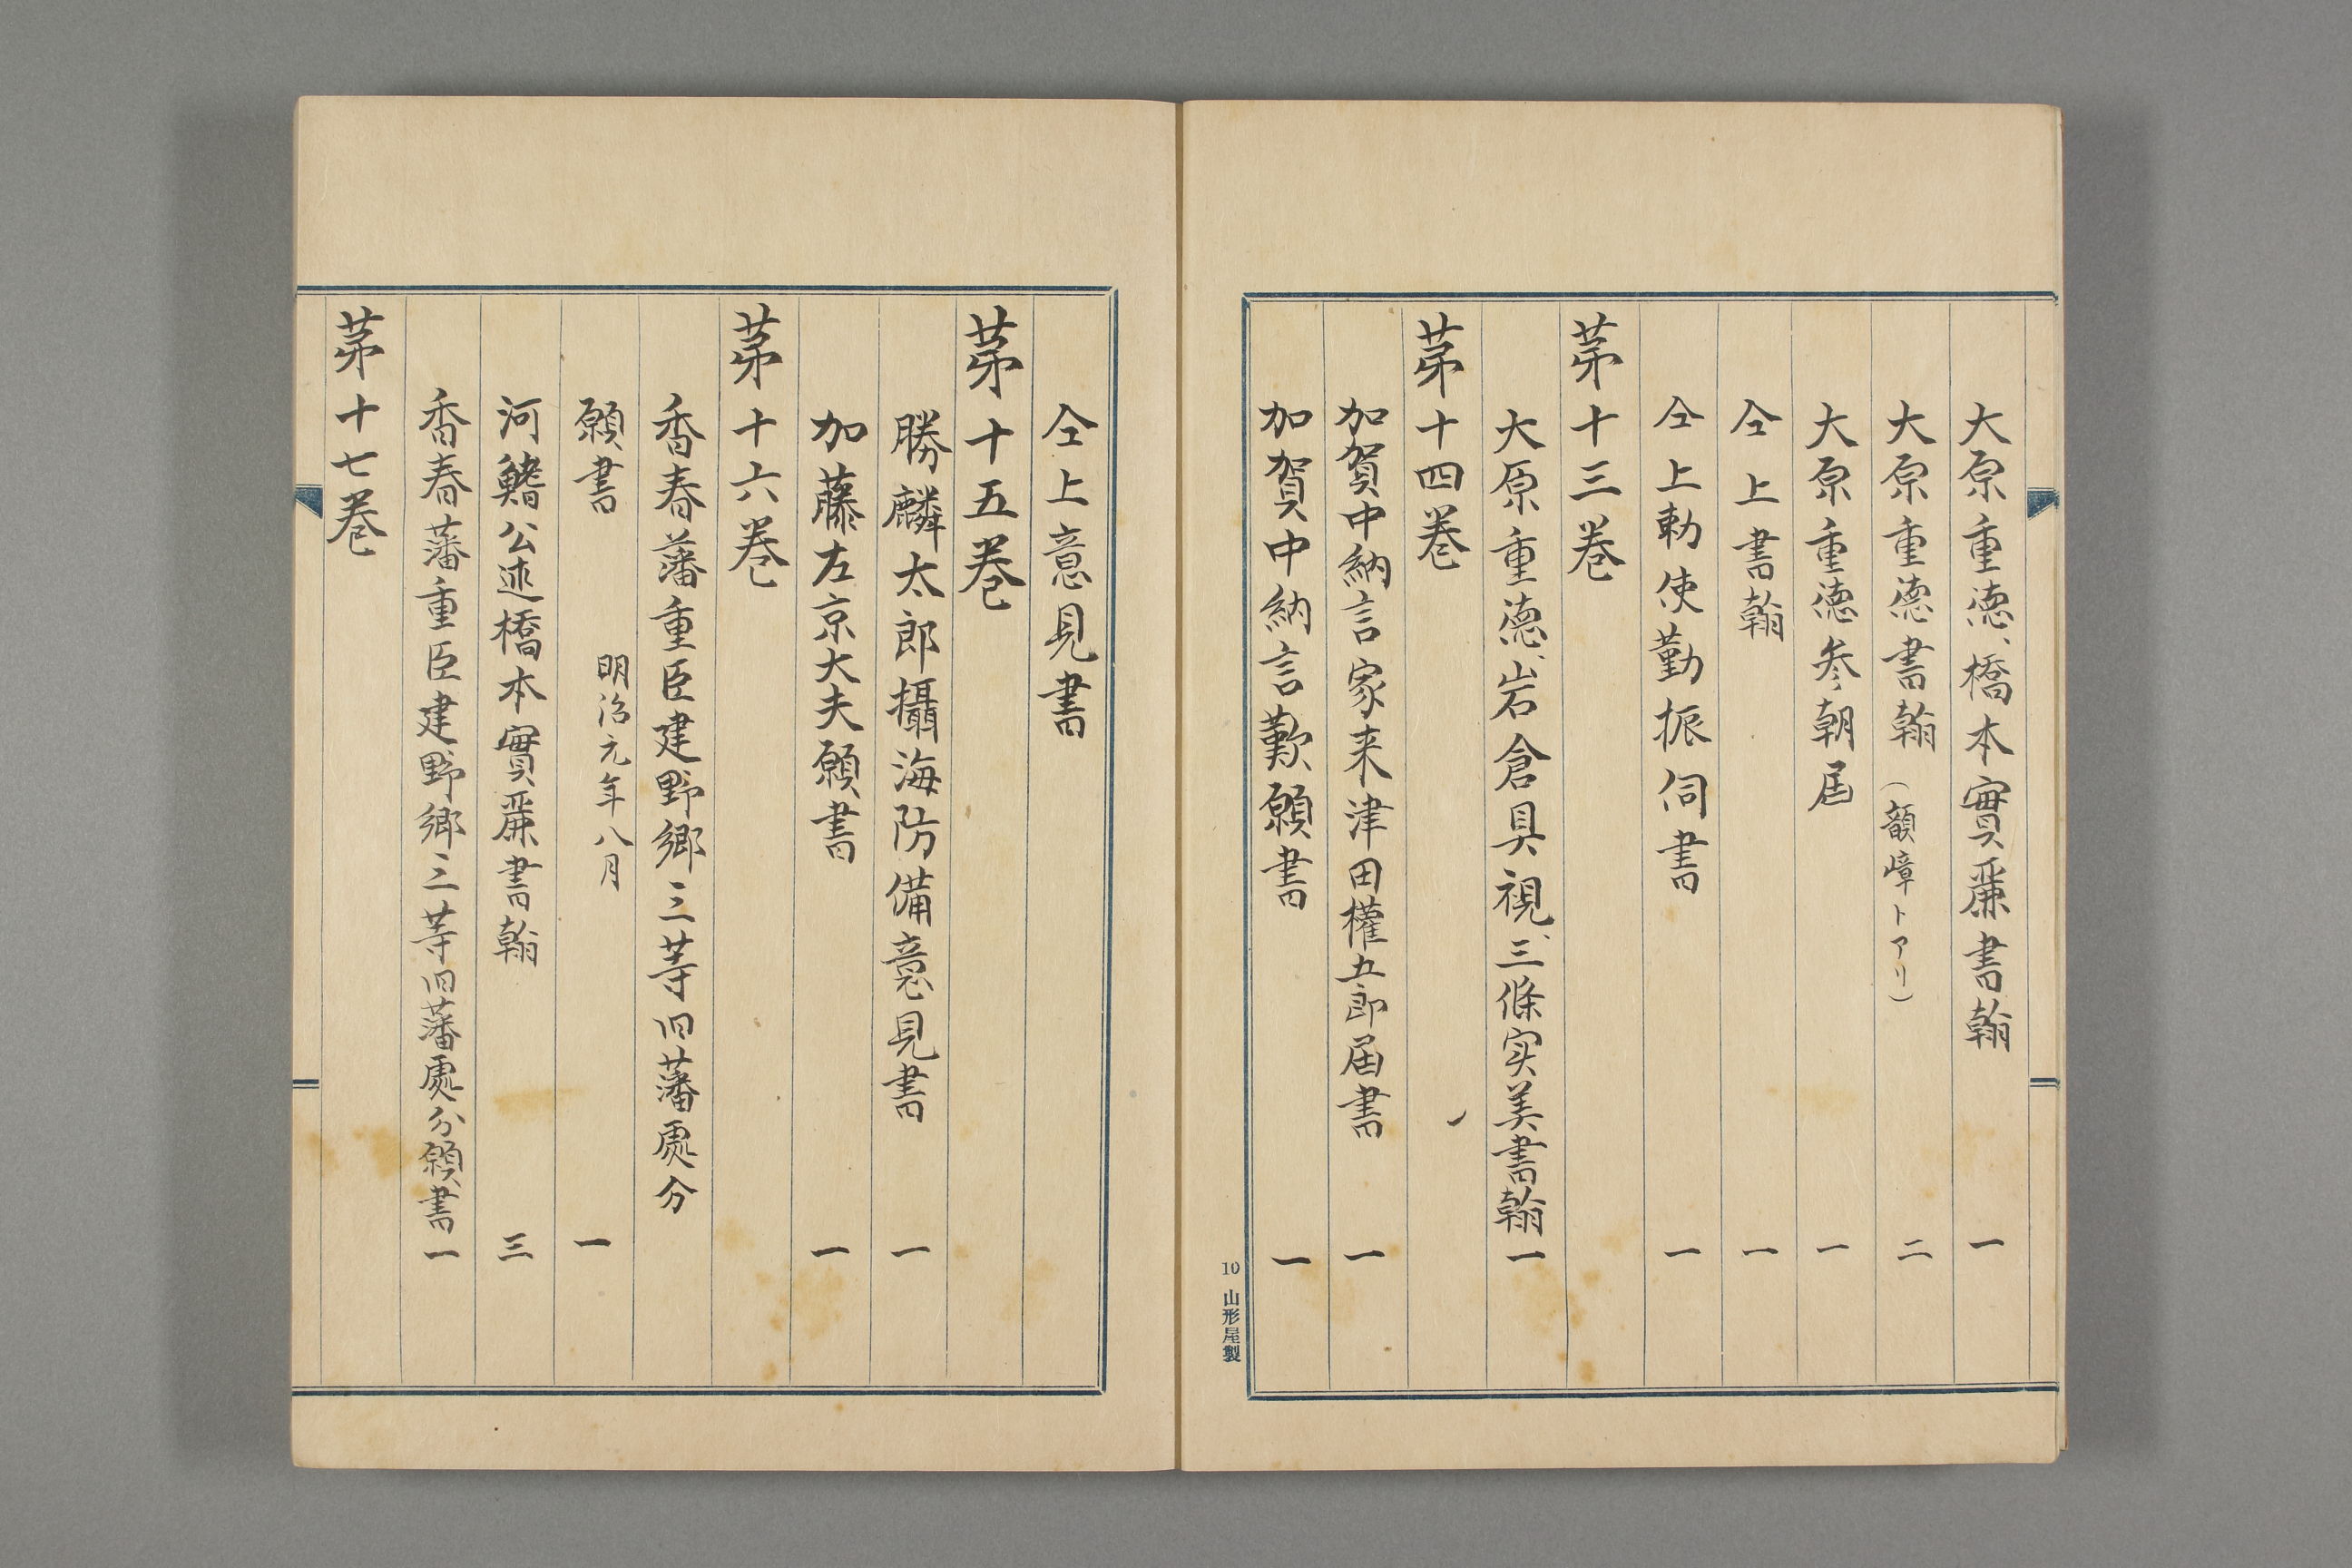 大原重徳、橋本實麗書翰 一
大原重徳書翰（韻嶂トアリ） 二
大原重徳参朝届 一
仝上書翰 一
仝上勅使勤振伺書 一
第十三巻
大原重徳、岩倉具視、三條実美書翰 一
第十四巻
加賀中納言家来津田權五郎届書 一
加賀中納言歎願書 一
10 山形屋製
仝上意見書
第十五巻
勝麟太郎攝海防備意見書 一
加藤左京大夫願書 一
第十六巻
香春藩重臣建野郷三等旧藩處分
願書 明治元年八月 一
河鰭公述橋本實麗書翰 三
香春藩重臣建野郷三等旧藩處分願書 一
第十七巻